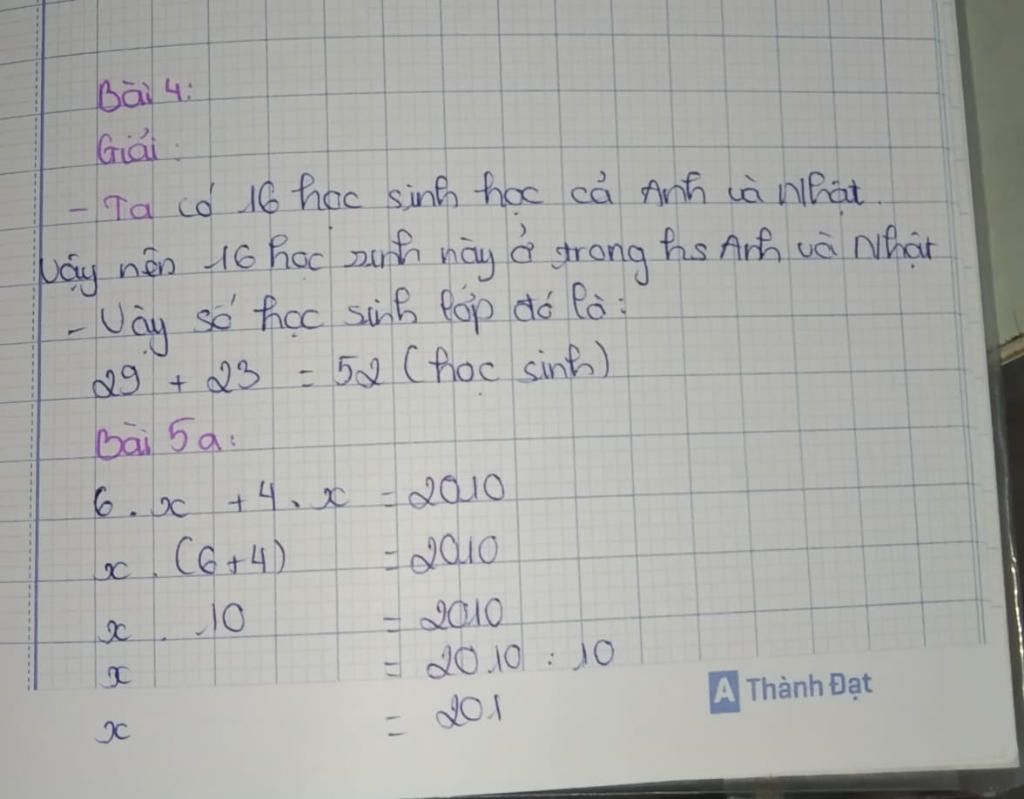 Bài 4:
Giải:
- Ta có 16 học sinh học cả Anh và Nhật.
Vậy nên 16 học sinh này ở trong hs Anh và Nhật
- Vậy số học sinh lớp đó là:
29 + 23 = 52 (học sinh)
Bài 5a:
6 . x + 4 . x = 2010
x . (6+4) = 2010
x . 10 = 2010
x = 2010 : 10
x = 201
A Thành Đạt